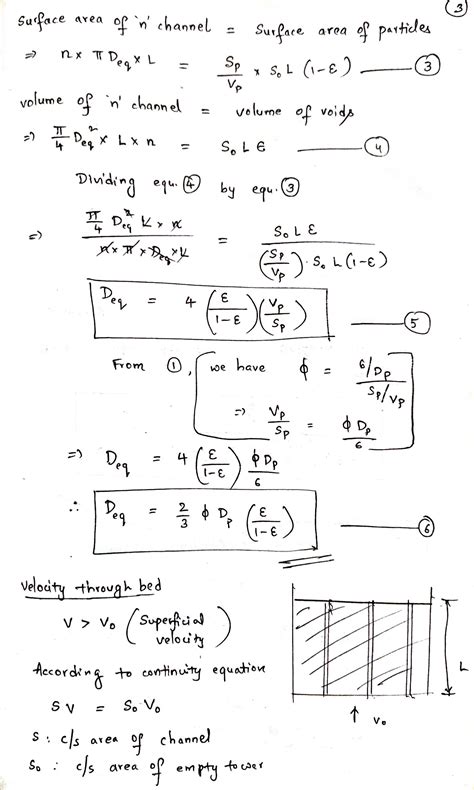 ③
Surface area of 'n' channel = Surface area of particles
⇒ n × π Deq × L = Sp/Vp × So L (1-ε) —— ③
volume of 'n' channel = volume of voids
⇒ π/4 Deq² × L × n = So L ε —— ④
Dividing equ. ④ by equ. ③
⇒ (π/4 Deq² L × n)/(n × π × Deq × L) = (So L ε)/((Sp/Vp) · So L (1-ε))
Deq = 4 (ε/(1-ε)) (Vp/Sp) —— ⑤
From ①, we have φ = (6/Dp)/(Sp/Vp)
⇒ Vp/Sp = φ Dp/6
⇒ Deq = 4 (ε/(1-ε)) φDp/6
∴ Deq = 2/3 φ Dp (ε/(1-ε)) —— ⑥
Velocity through bed
V > Vo (Superficial velocity)
According to continuity equation
S V = So Vo
S : c/s area of channel
So : c/s area of empty tower
L
↑ Vo